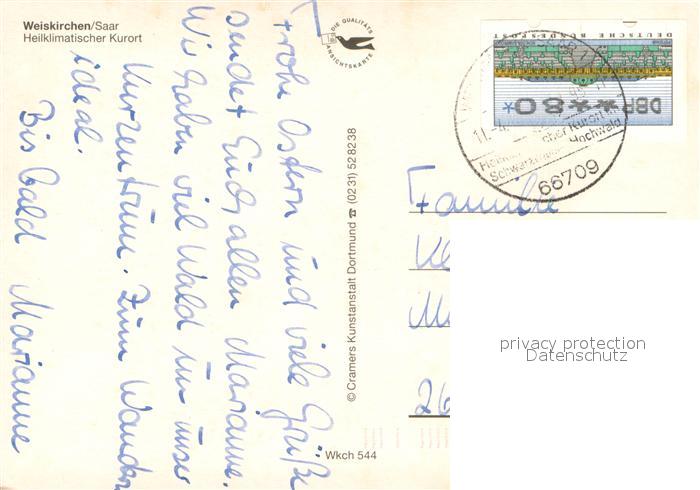 Weiskirchen/Saar
Heilklimatischer Kurort
DIE QUALITÄTS
ANSICHTSKARTE
DEUTSCHE BUNDESPOST
DBP **80*
11.-4.
cher Kurort
Hochwald
66709
Frohe Ostern und viele Grüße
sendet Euch allen Marianne.
Wir haben viel Wald um unser
Kurzentrum. Zum Wandern
ideal.
Bis bald Marianne
© Cramers Kunstanstalt Dortmund ☎ (0231) 528238
Familie
Kl
M
26
privacy protection
Datenschutz
Wkch 544